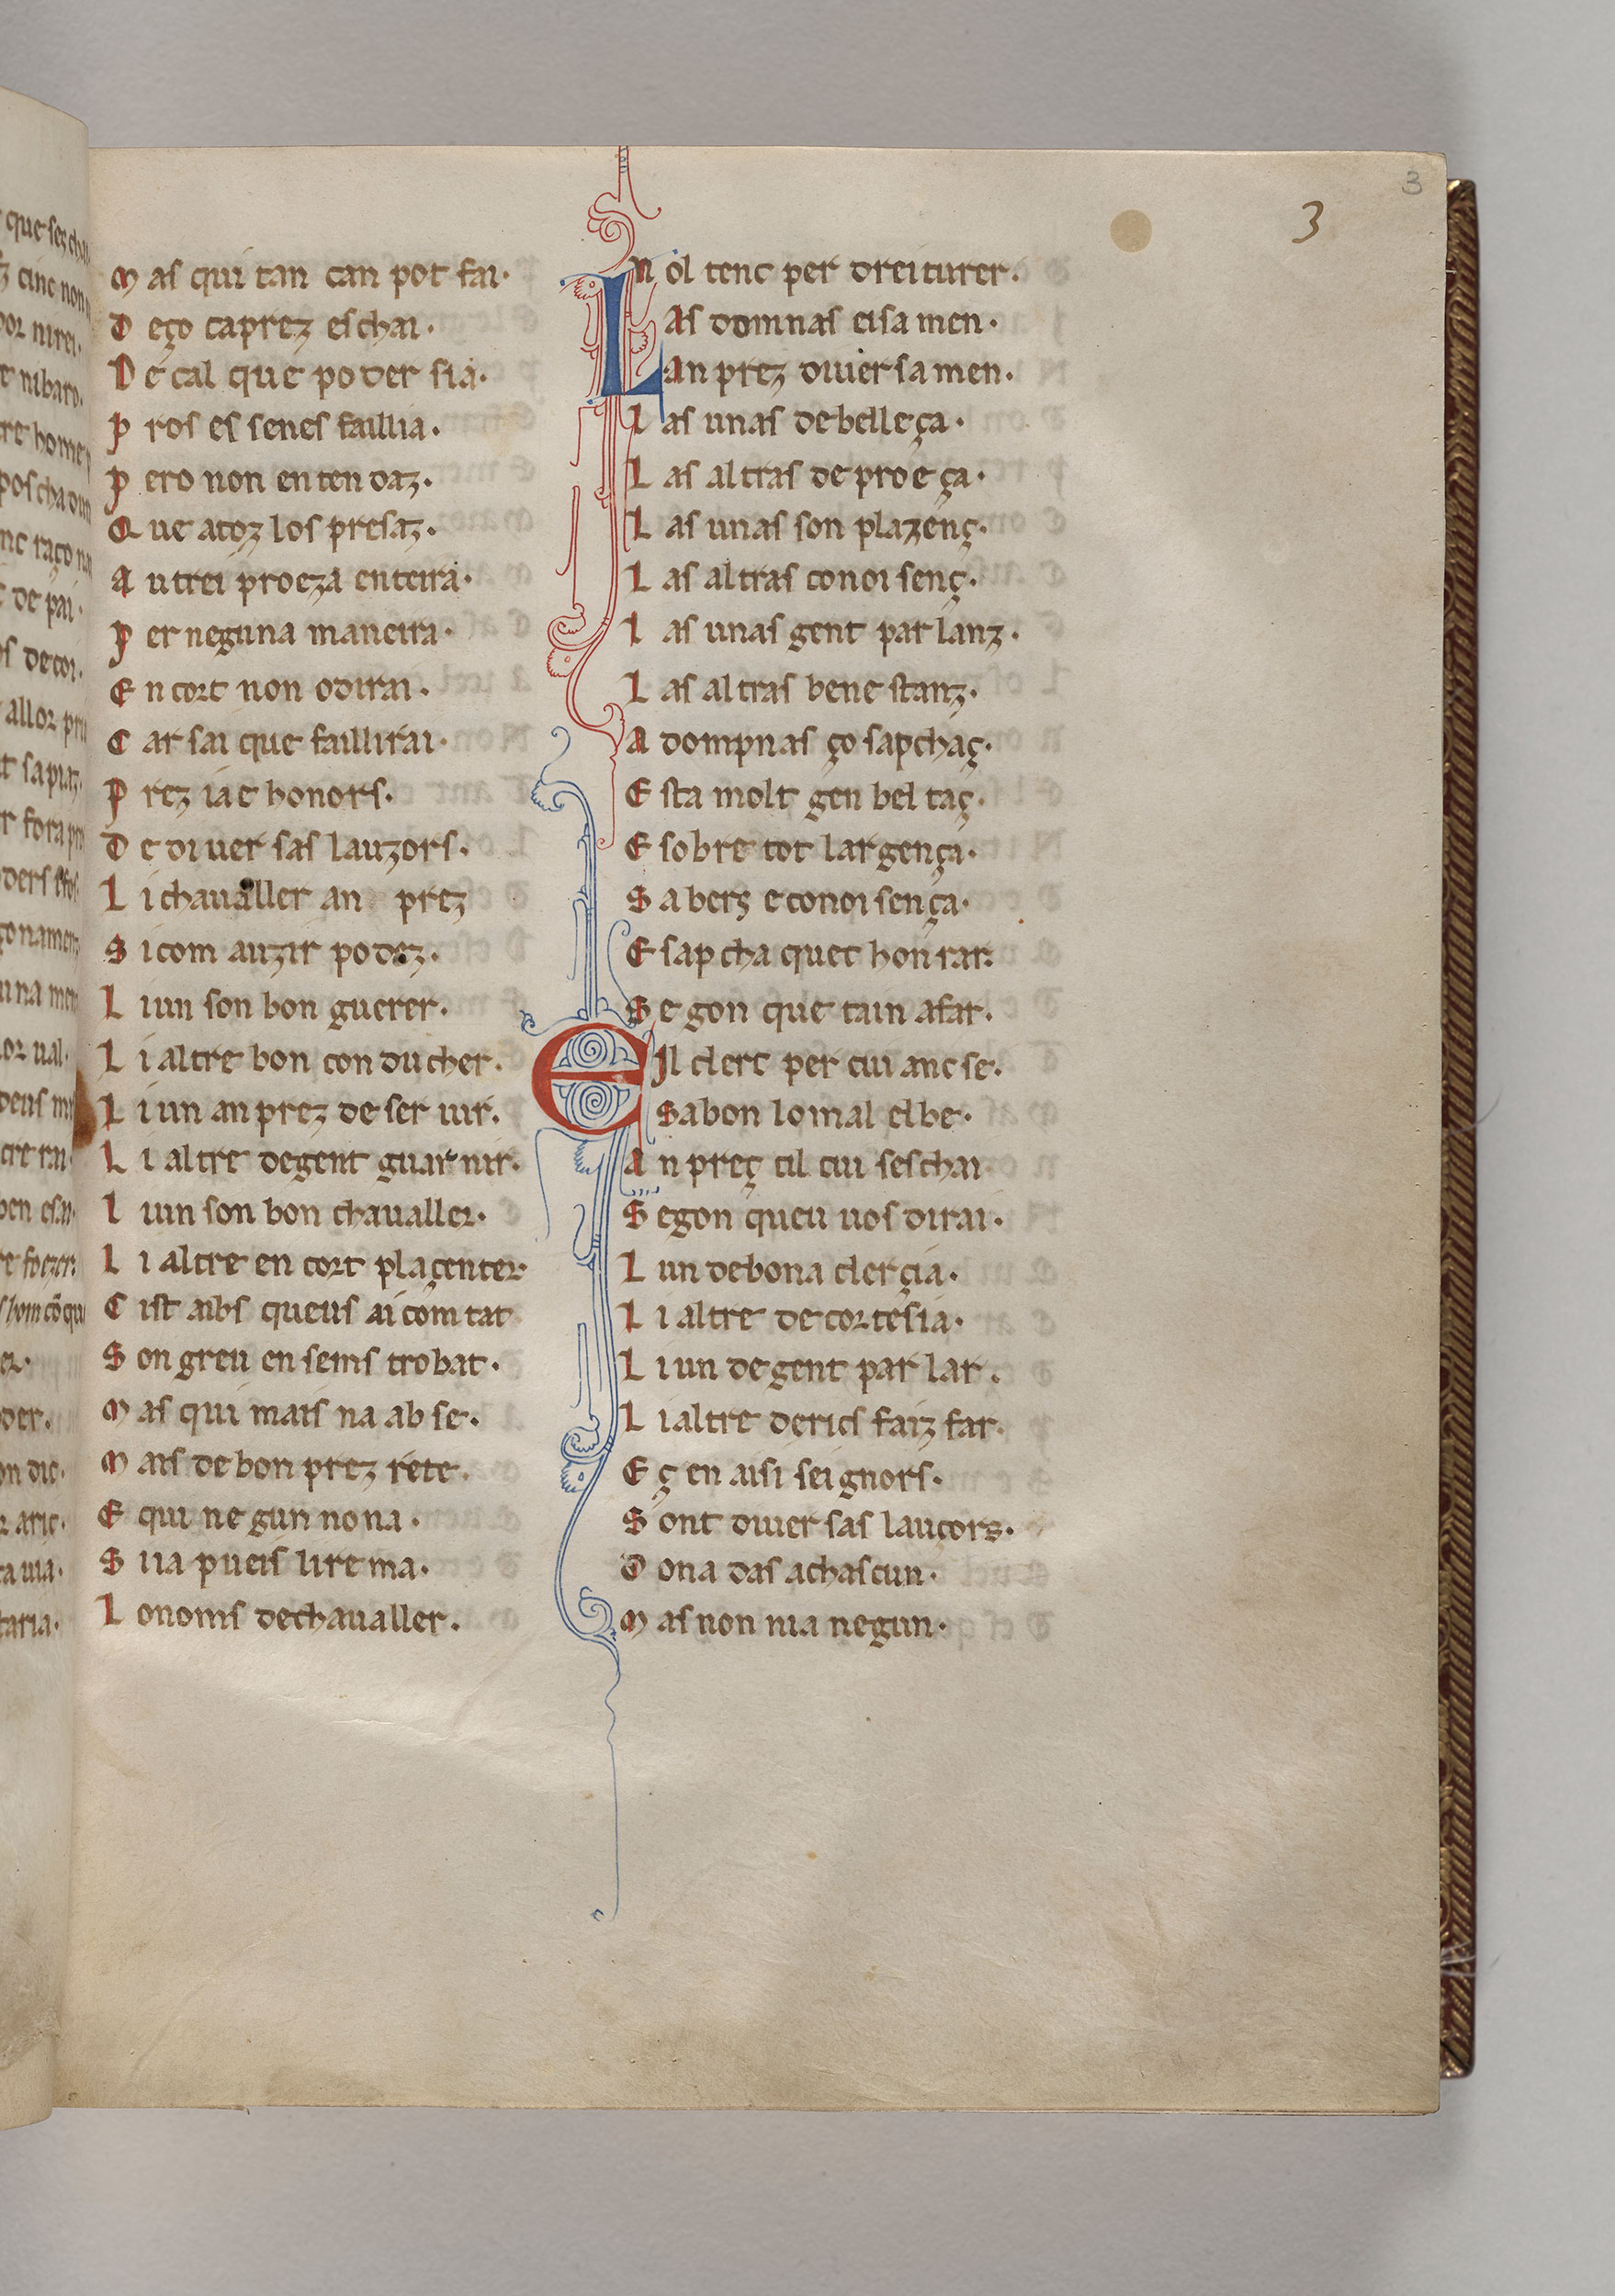 3
3
Mas qui tan can pot fai·
Deço caprez eschai·
De cal que poder sia·
Pros es senes faillia·
Pero non entendaz·
Que atoz los presaz·
Autrei proeza enteira·
Per neguna maneira·
En cort non odirai·
Car sai que faillirai·
Prez ia e honors·
De diuersas lauzors·
Li chaualler an prez
Si com auzir podez·
Li un son bon guerer·
Li altre bon conducher·
Li un an prez de seruir·
Li altre de gent guarnir·
Li uin son bon chaualler·
Li altre en cort plaçenter·
Cist aibs queus ai comtat
Son greu ensems trobat·
Mas qui mais na ab se·
Mais de bon prez rete·
E qui negun no na·
Si ia pueis lirema·
Lo noms de chaualler·
Nol tenc per dreiturer·
Las domnas eisamen·
An prez diuersamen·
Las unas de belleça·
Las altras de proeça·
Las unas son plazenç·
Las altras conoisenç·
Las unas gent parlanz·
Las altras benestanz·
A dompnas ço sapchaç·
Esta molt gen beltaç·
E sobre tot largença·
Sabers e conoisença·
E sapcha quet honrar·
Segon que tain afar·
Eil clerc per cui anc se·
Sabon lo mal el be·
An preç cil cui seschai
Segon queu uos dirai·
Lun de bona clerçia·
Li altre de cortesia·
Li un de gent parlar·
Li altre de rics faiz far·
E ç en aisi seignors·
Sont diuersas lauçors·
Donadas a chascun·
Mas non nia negun·